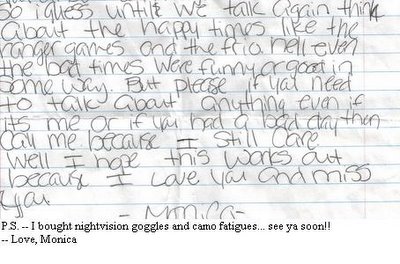 so i guess until we talk again think
about the happy times like the
ranger games and the trio hell even
the bad times were funny or good in
some way. But please if you need
to talk about anything even if
its me or if you had a bad day then
call me because I still care
well I hope this works out
because I love you and miss
you
- Monica-
P.S. -- I bought nightvision goggles and camo fatigues... see ya soon!!
-- Love, Monica